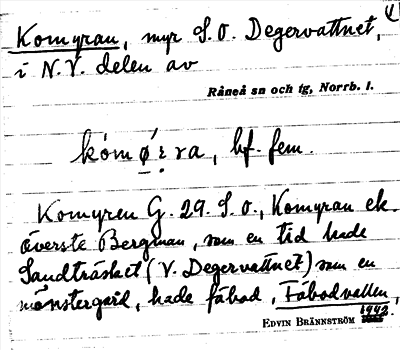 Komyran, myr S. O. Degervattnet,
i N.V. delen av
Råneå sn och tg, Norrb. l.
kómǿ:ra, bf. fem.
Komyren G. 29. S. o., Komyran ek.
överste Bergman, som en tid hade
Sandträsket (V. Degervattnet) som en
mönstergård, hade fäbod, Fäbodvallen,
EDVIN BRÄNNSTRÖM 1942